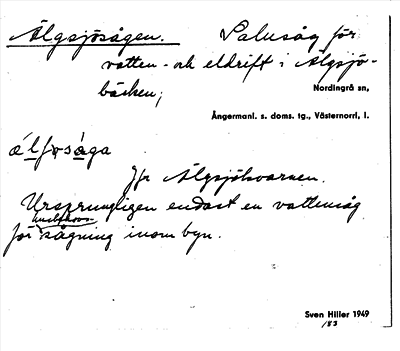 Älgsjösågen. Salusåg för
vatten- och eldrift i Älgsjö-
bäcken;
Nordingrå sn,
Ångermanl. s. doms. tg., Västernorrl, l.
älfosåga
Jfr Älgsjökvarnen.
Ursprungligen endast en vattensåg
för husbehovs-
sågning inom byn.
Sven Hiller 1949
183